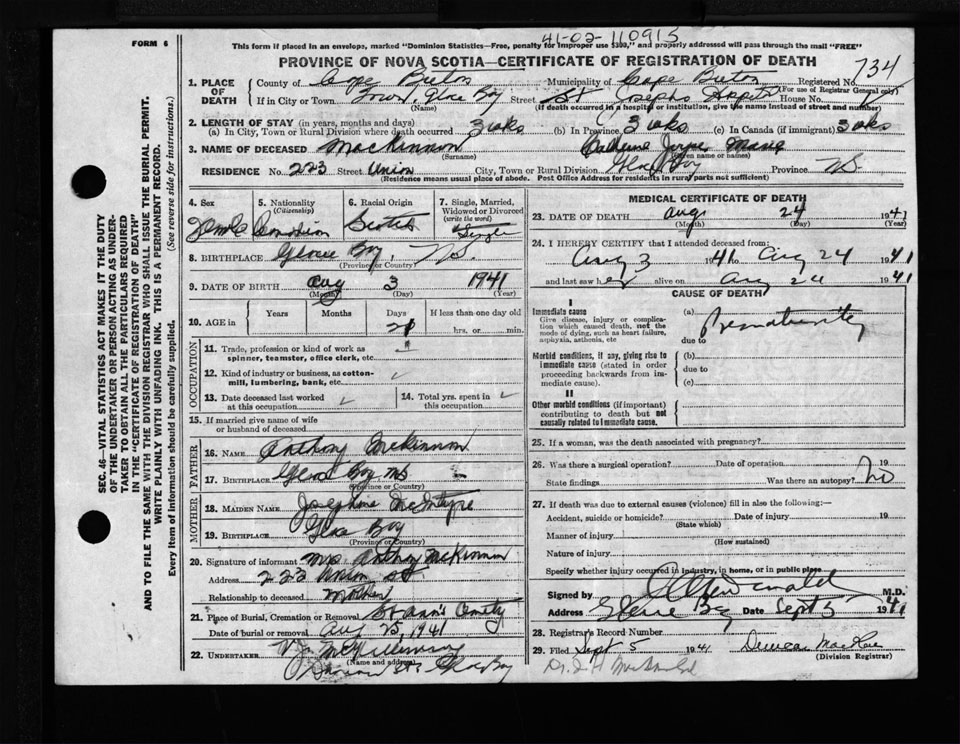 FORM 6
41-02-110915
This form if placed in an envelope, marked "Dominion Statistics—Free, penalty for improper use $300," and properly addressed will pass through the mail "FREE"
PROVINCE OF NOVA SCOTIA—CERTIFICATE OF REGISTRATION OF DEATH
734
1. PLACE OF DEATH County of Cape Breton Municipality of Cape Breton Registered No.
(For use of Registrar General only)
If in City or Town Town, Glace Bay Street St Josephs House No.
(If death occurred in a hospital or institution, give the name instead of street and number)
2. LENGTH OF STAY (in years, months and days)
(a) In City, Town or Rural Division where death occurred 3 wks (b) In Province 3 wks (c) In Canada (if immigrant) 3 wks
3. NAME OF DECEASED MacKinnon Catherine Marie
(Surname) (Given name or names)
RESIDENCE No. 223 Street Union City, Town or Rural Division Glace Bay Province NS
(Residence means usual place of abode. Post Office Address for residents in rural parts not sufficient)
4. Sex 5. Nationality (Citizenship) 6. Racial Origin 7. Single, Married, Widowed or Divorced (write the word)
Female Canadian Scotch Single
8. BIRTHPLACE Glace Bay, N.S.
(Province or Country)
9. DATE OF BIRTH Aug 3 1941
(Month) (Day) (Year)
10. AGE in Years Months Days If less than one day
21 hrs. or min.
OCCUPATION
11. Trade, profession or kind of work as spinner, teamster, office clerk, etc.
12. Kind of industry or business, as cotton-mill, lumbering, bank, etc.
13. Date deceased last worked at this occupation 14. Total yrs. spent in this occupation
15. If married give name of wife or husband of deceased
FATHER
16. NAME Anthony McKinnon
17. BIRTHPLACE Glace Bay NS
(Province or Country)
MOTHER
18. MAIDEN NAME Josephine McIntyre
19. BIRTHPLACE Glace Bay
(Province or Country)
20. Signature of informant Mrs Anthony McKinnon
Address 223 Union St
Relationship to deceased Mother
21. Place of Burial, Cremation or Removal St Ann's Cemetery
Date of burial or removal Aug 25, 1941
22. UNDERTAKER
(Name and address)
Glace Bay
MEDICAL CERTIFICATE OF DEATH
23. DATE OF DEATH Aug 24 1941
(Month) (Day) (Year)
24. I HEREBY CERTIFY that I attended deceased from:
Aug 3 1941 to Aug 24 1941
and last saw her alive on Aug 24 1941
CAUSE OF DEATH
I
Immediate cause
Give disease, injury or complication which caused death, not the mode of dying, such as heart failure, asphyxia, asthenia, etc
(a) Prematurity
due to
Morbid conditions, if any, giving rise to immediate cause (stated in order proceeding backwards from immediate cause).
(b)
due to
(c)
II
Other morbid conditions (if important) contributing to death but not causally related to immediate cause.
25. If a woman, was the death associated with pregnancy?
26. Was there a surgical operation? Date of operation 19
State findings Was there an autopsy? No
27. If death was due to external causes (violence) fill in also the following:—
Accident, suicide or homicide? Date of injury 19
(State which)
Manner of injury
(How sustained)
Nature of injury
Specify whether injury occurred in industry, in home, or in public place
Signed by M.D.
Address Glace Bay Date Sept 5 1941
28. Registrar's Record Number
29. Filed Sept 5 1941 Duncan MacRae
(Division Registrar)
SEC. 46—VITAL STATISTICS ACT MAKES IT THE DUTY OF THE UNDERTAKER OR PERSON ACTING AS UNDERTAKER TO OBTAIN ALL THE PARTICULARS REQUIRED IN THE "CERTIFICATE OF REGISTRATION OF DEATH"
AND TO FILE THE SAME WITH THE DIVISION REGISTRAR WHO SHALL ISSUE THE BURIAL PERMIT.
WRITE PLAINLY WITH UNFADING INK. THIS IS A PERMANENT RECORD.
Every item of information should be carefully supplied. (See reverse side for instructions.)